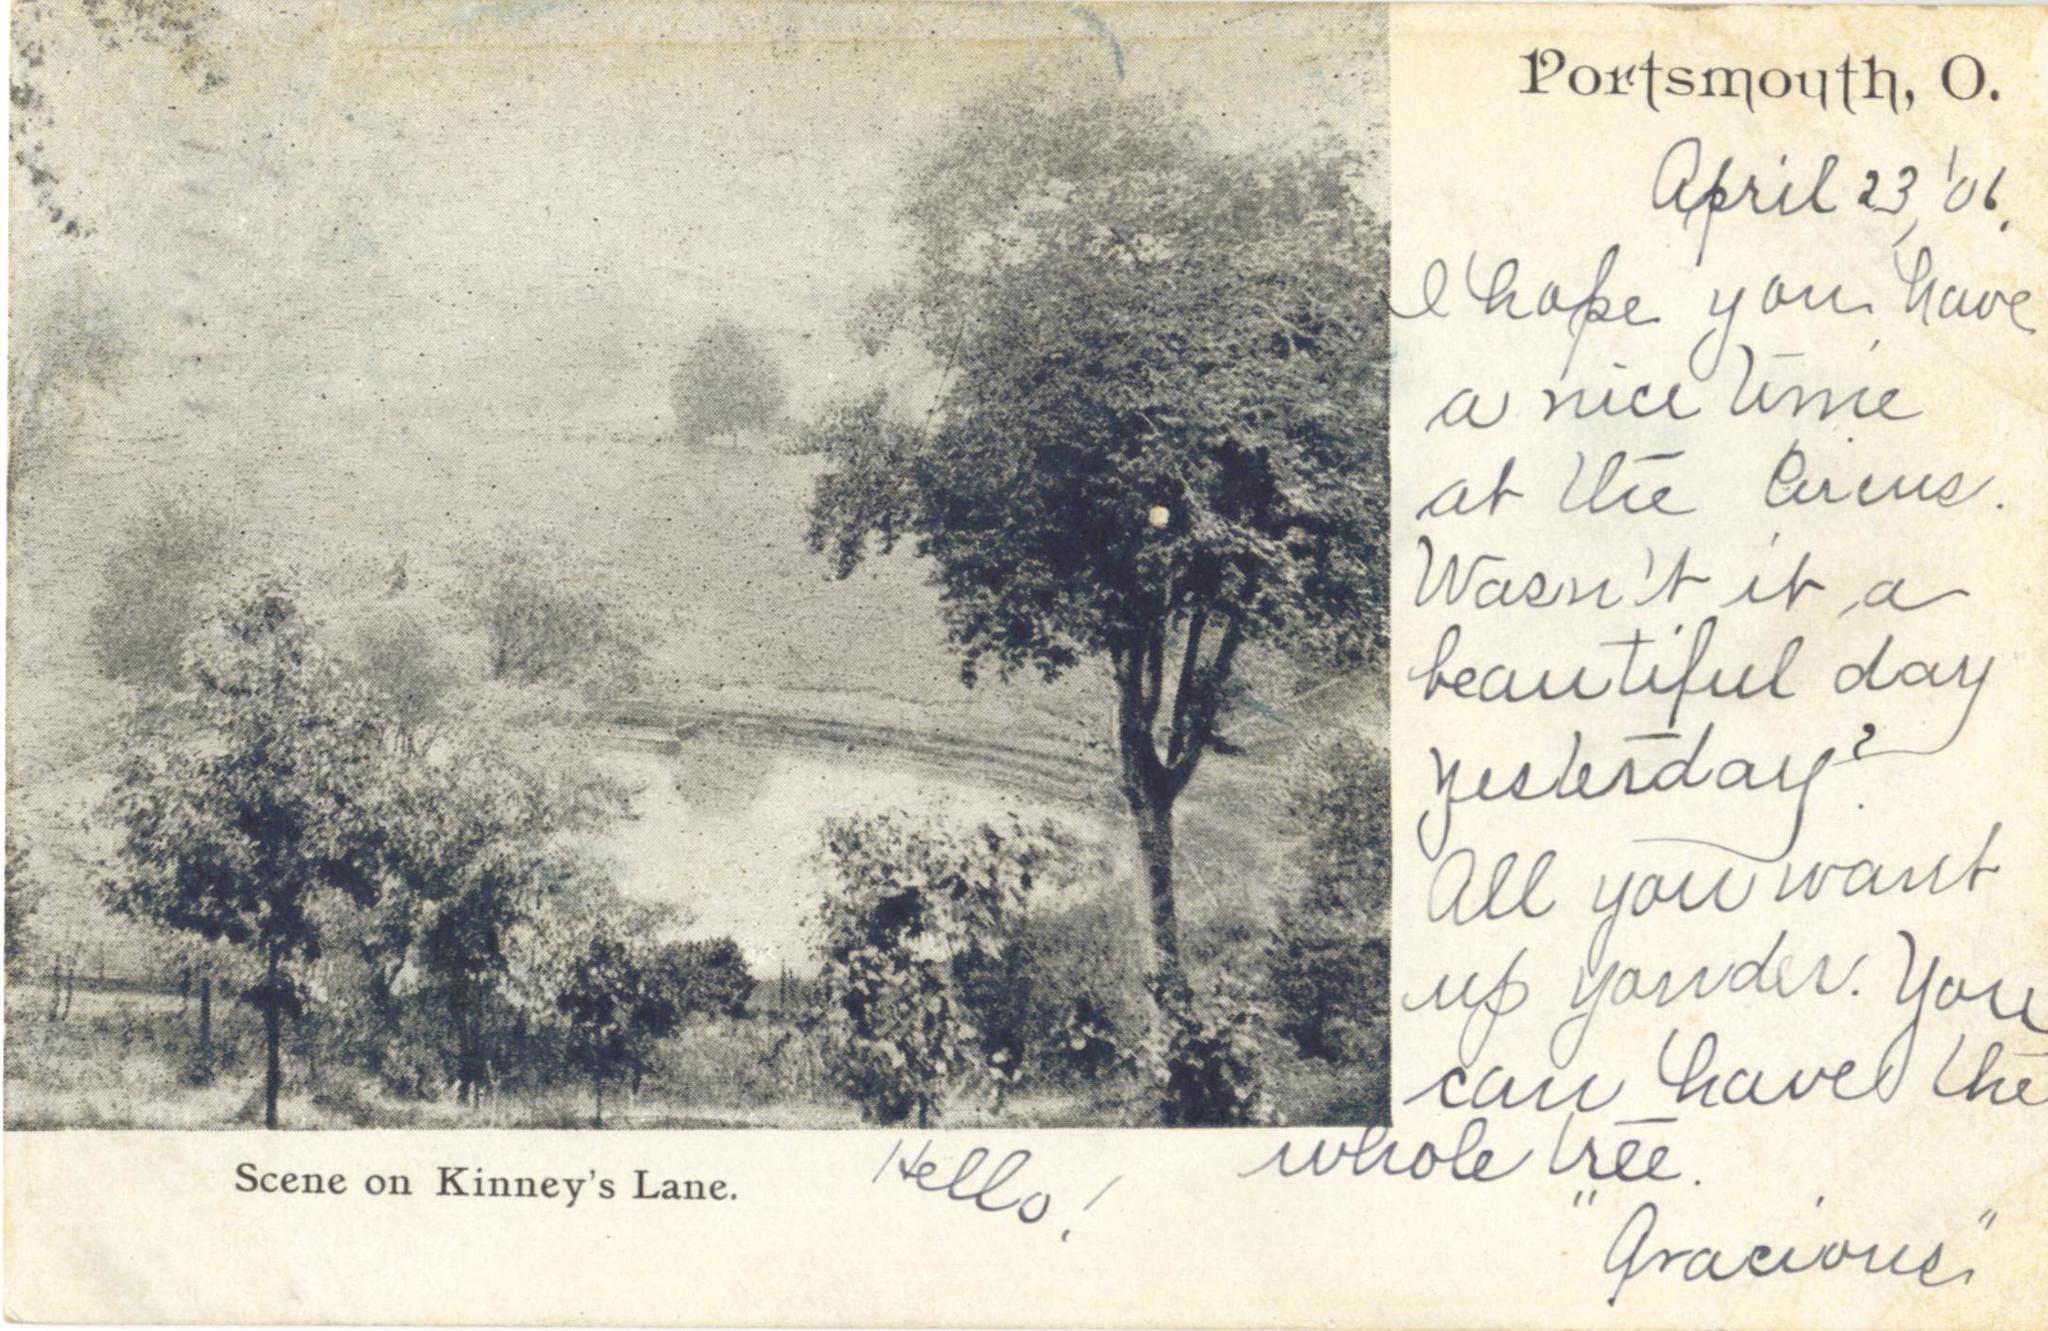 Portsmouth, O.
April 23, '06.
I hope you have
a nice time
at the Circus.
Wasn't it a
beautiful day
yesterday?
All you want
up yonder. You
can have the
whole tree.
"Gracious"
Scene on Kinney's Lane.
Hello!